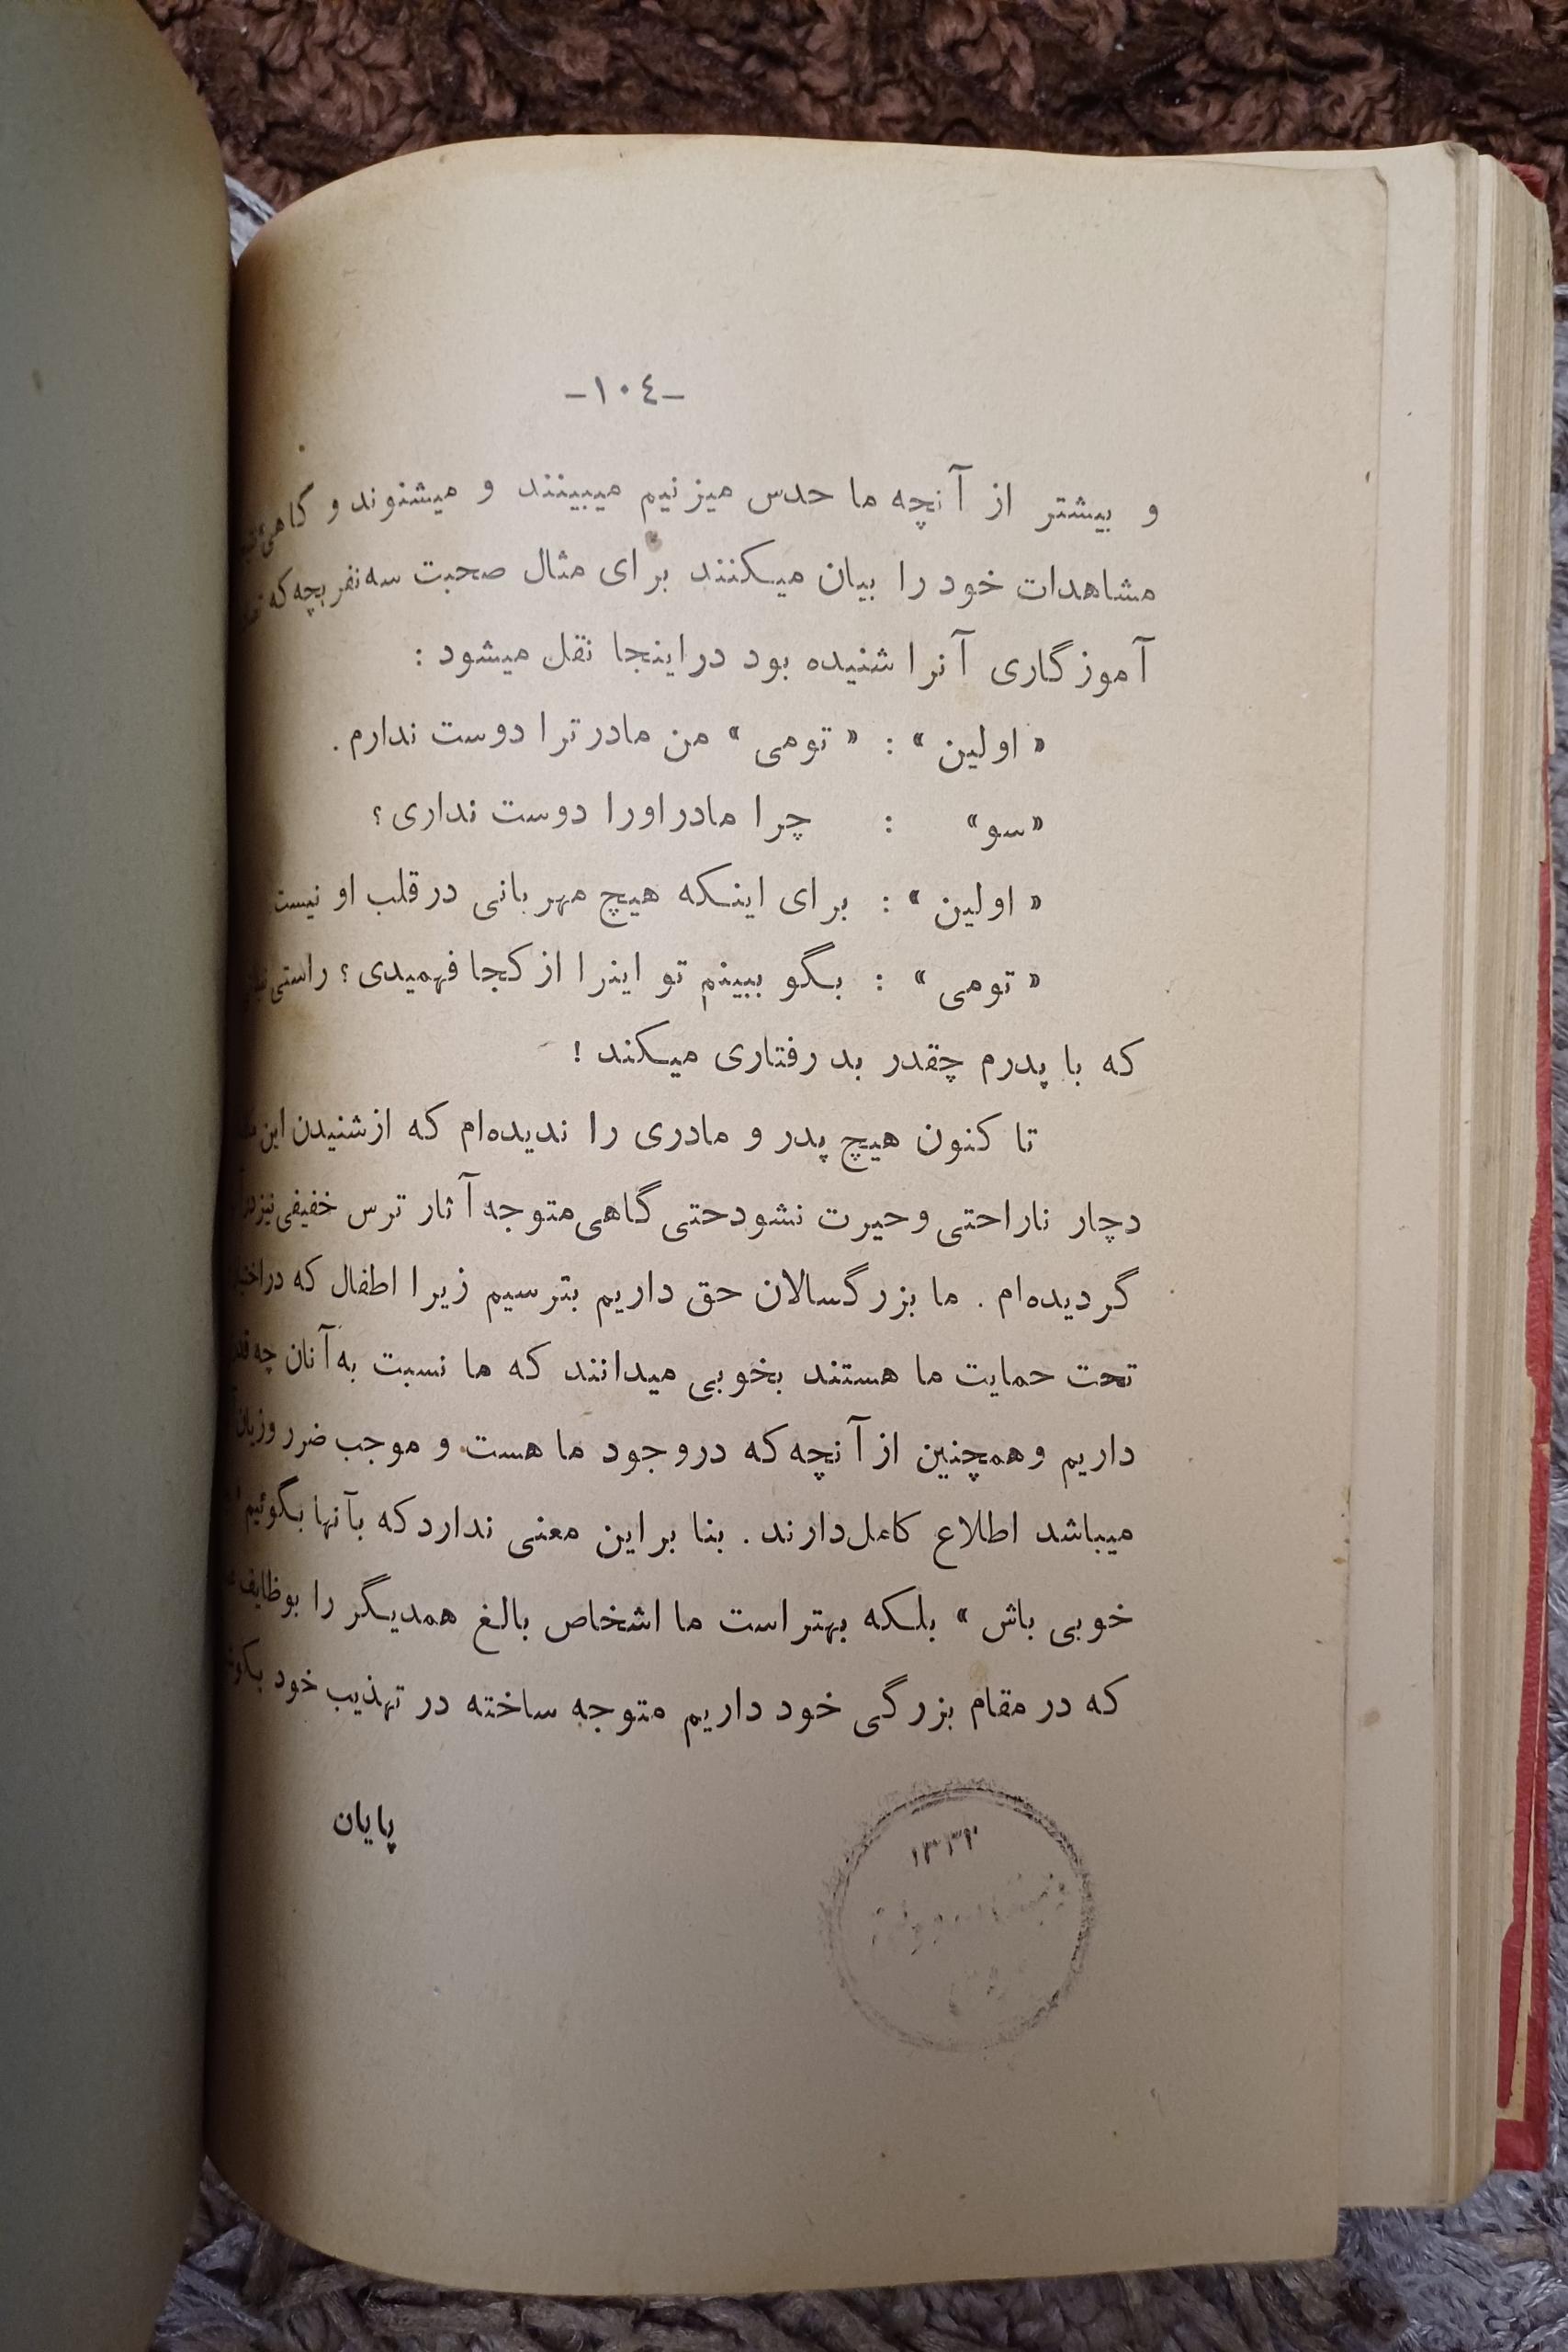 -١٠٤-
و بیشتر از آنچه ما حدس میزنیم میبینند و میشنوند و گاهی
مشاهدات خود را بیان میکنند برای مثال صحبت سه نفر بچه که
آموزگاری آنرا شنیده بود در اینجا نقل میشود :
« اولین » : « تومی » من مادر ترا دوست ندارم .
«سو» : چرا مادر اورا دوست نداری؟
« اولین » : برای اینکه هیچ مهربانی در قلب او نیست
« تومی » : بگو ببینم تو اینرا از کجا فهمیدی؟ راستی
که با پدرم چقدر بد رفتاری میکند !
تا کنون هیچ پدر و مادری را ندیده‌ام که از شنیدن این
دچار ناراحتی و حیرت نشود حتی گاهی متوجه آثار ترس خفیفی نیز
گردیده‌ام . ما بزرگسالان حق داریم بترسیم زیرا اطفال که در
تحت حمایت ما هستند بخوبی میدانند که ما نسبت به آنان چه
داریم و همچنین از آنچه که در وجود ما هست و موجب ضرر و زیان
میباشد اطلاع کامل دارند . بنا بر این معنی ندارد که بآنها بگوئیم
خوبی باش » بلکه بهتر است ما اشخاص بالغ همدیگر را بوظایف
که در مقام بزرگی خود داریم متوجه ساخته در تهذیب خود
پایان